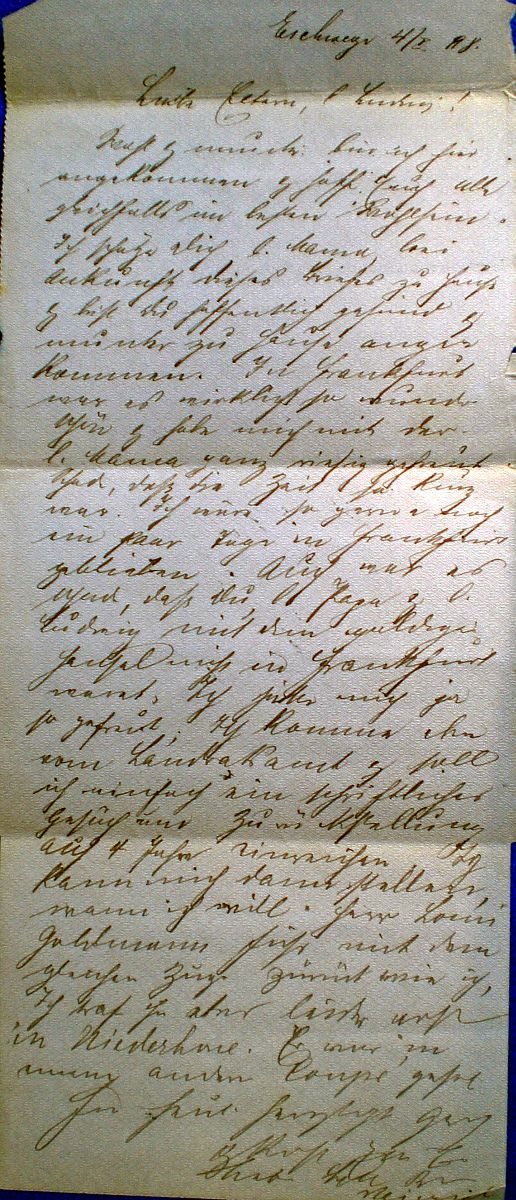 Eschwege 4/X. 98.
Liebe Eltern, l. Ludwig!
Wohl & munter bin ich hier
angekommen & hoff. Euch alle
gleichfalls im besten Wohlsein.
Ich schätze Dich l. Mama, bei
Ankunft dieses Briefes zu Hause
& bist Du hoffentlich gesund &
munter zu Hause ange
kommen. In Frankfurt
war es wirklich so wunder
schön & habe mich mit der
l. Mama ganz riesig gefreut.
Schad, daß die Zeit so kurz
war. Ich wäre so gerne noch
ein paar Tage in Frankfurt
geblieben. Auch war es
schad, daß Du l. Papa & l.
Ludwig mit dem
nicht in Frankfurt
waret. Ich hätte mich ja
so gefreut. Ich komme eben
vom Landratsamt & soll
ich einfach ein schriftliches
Gesuch um Zurückstellung
auf 4 Jahre einreichen. Ich
kann mich dann stellen,
wann ich will. Herr Louis
Goldmann fuhr mit dem
gleichen Zuge zurück wie ich,
Ich traf ihn aber leider erst
in Niederhone. Er war in
einem andern Coupé
Für heute herzlichst